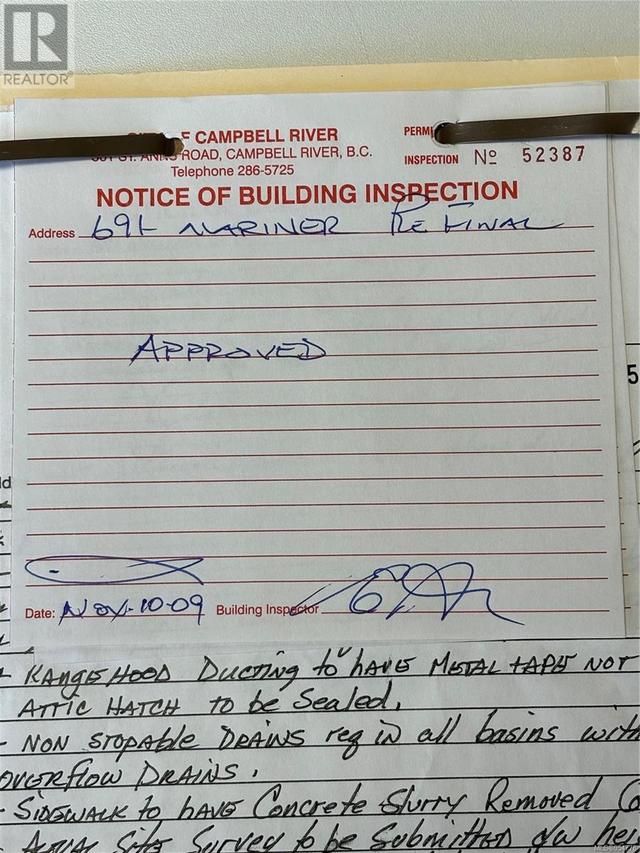 REALTOR®
OF CAMPBELL RIVER
301 ST. ANNS ROAD, CAMPBELL RIVER, B.C.
Telephone 286-5725
PERMI
INSPECTION Nº 52387
NOTICE OF BUILDING INSPECTION
Address 691 MARINER Re FINAL
APPROVED
Date: Nov-10-09 Building Inspector
- RANGE HOOD Ducting to have METAL tAPE NOT
ATTIC HATCH to be Sealed.
- NON StopABLE DRAINS req in all basins with
OVERFLOW DRAINS.
- SIDEWALK to HAVE Concrete Slurry Removed
Site Survey to be Submitted